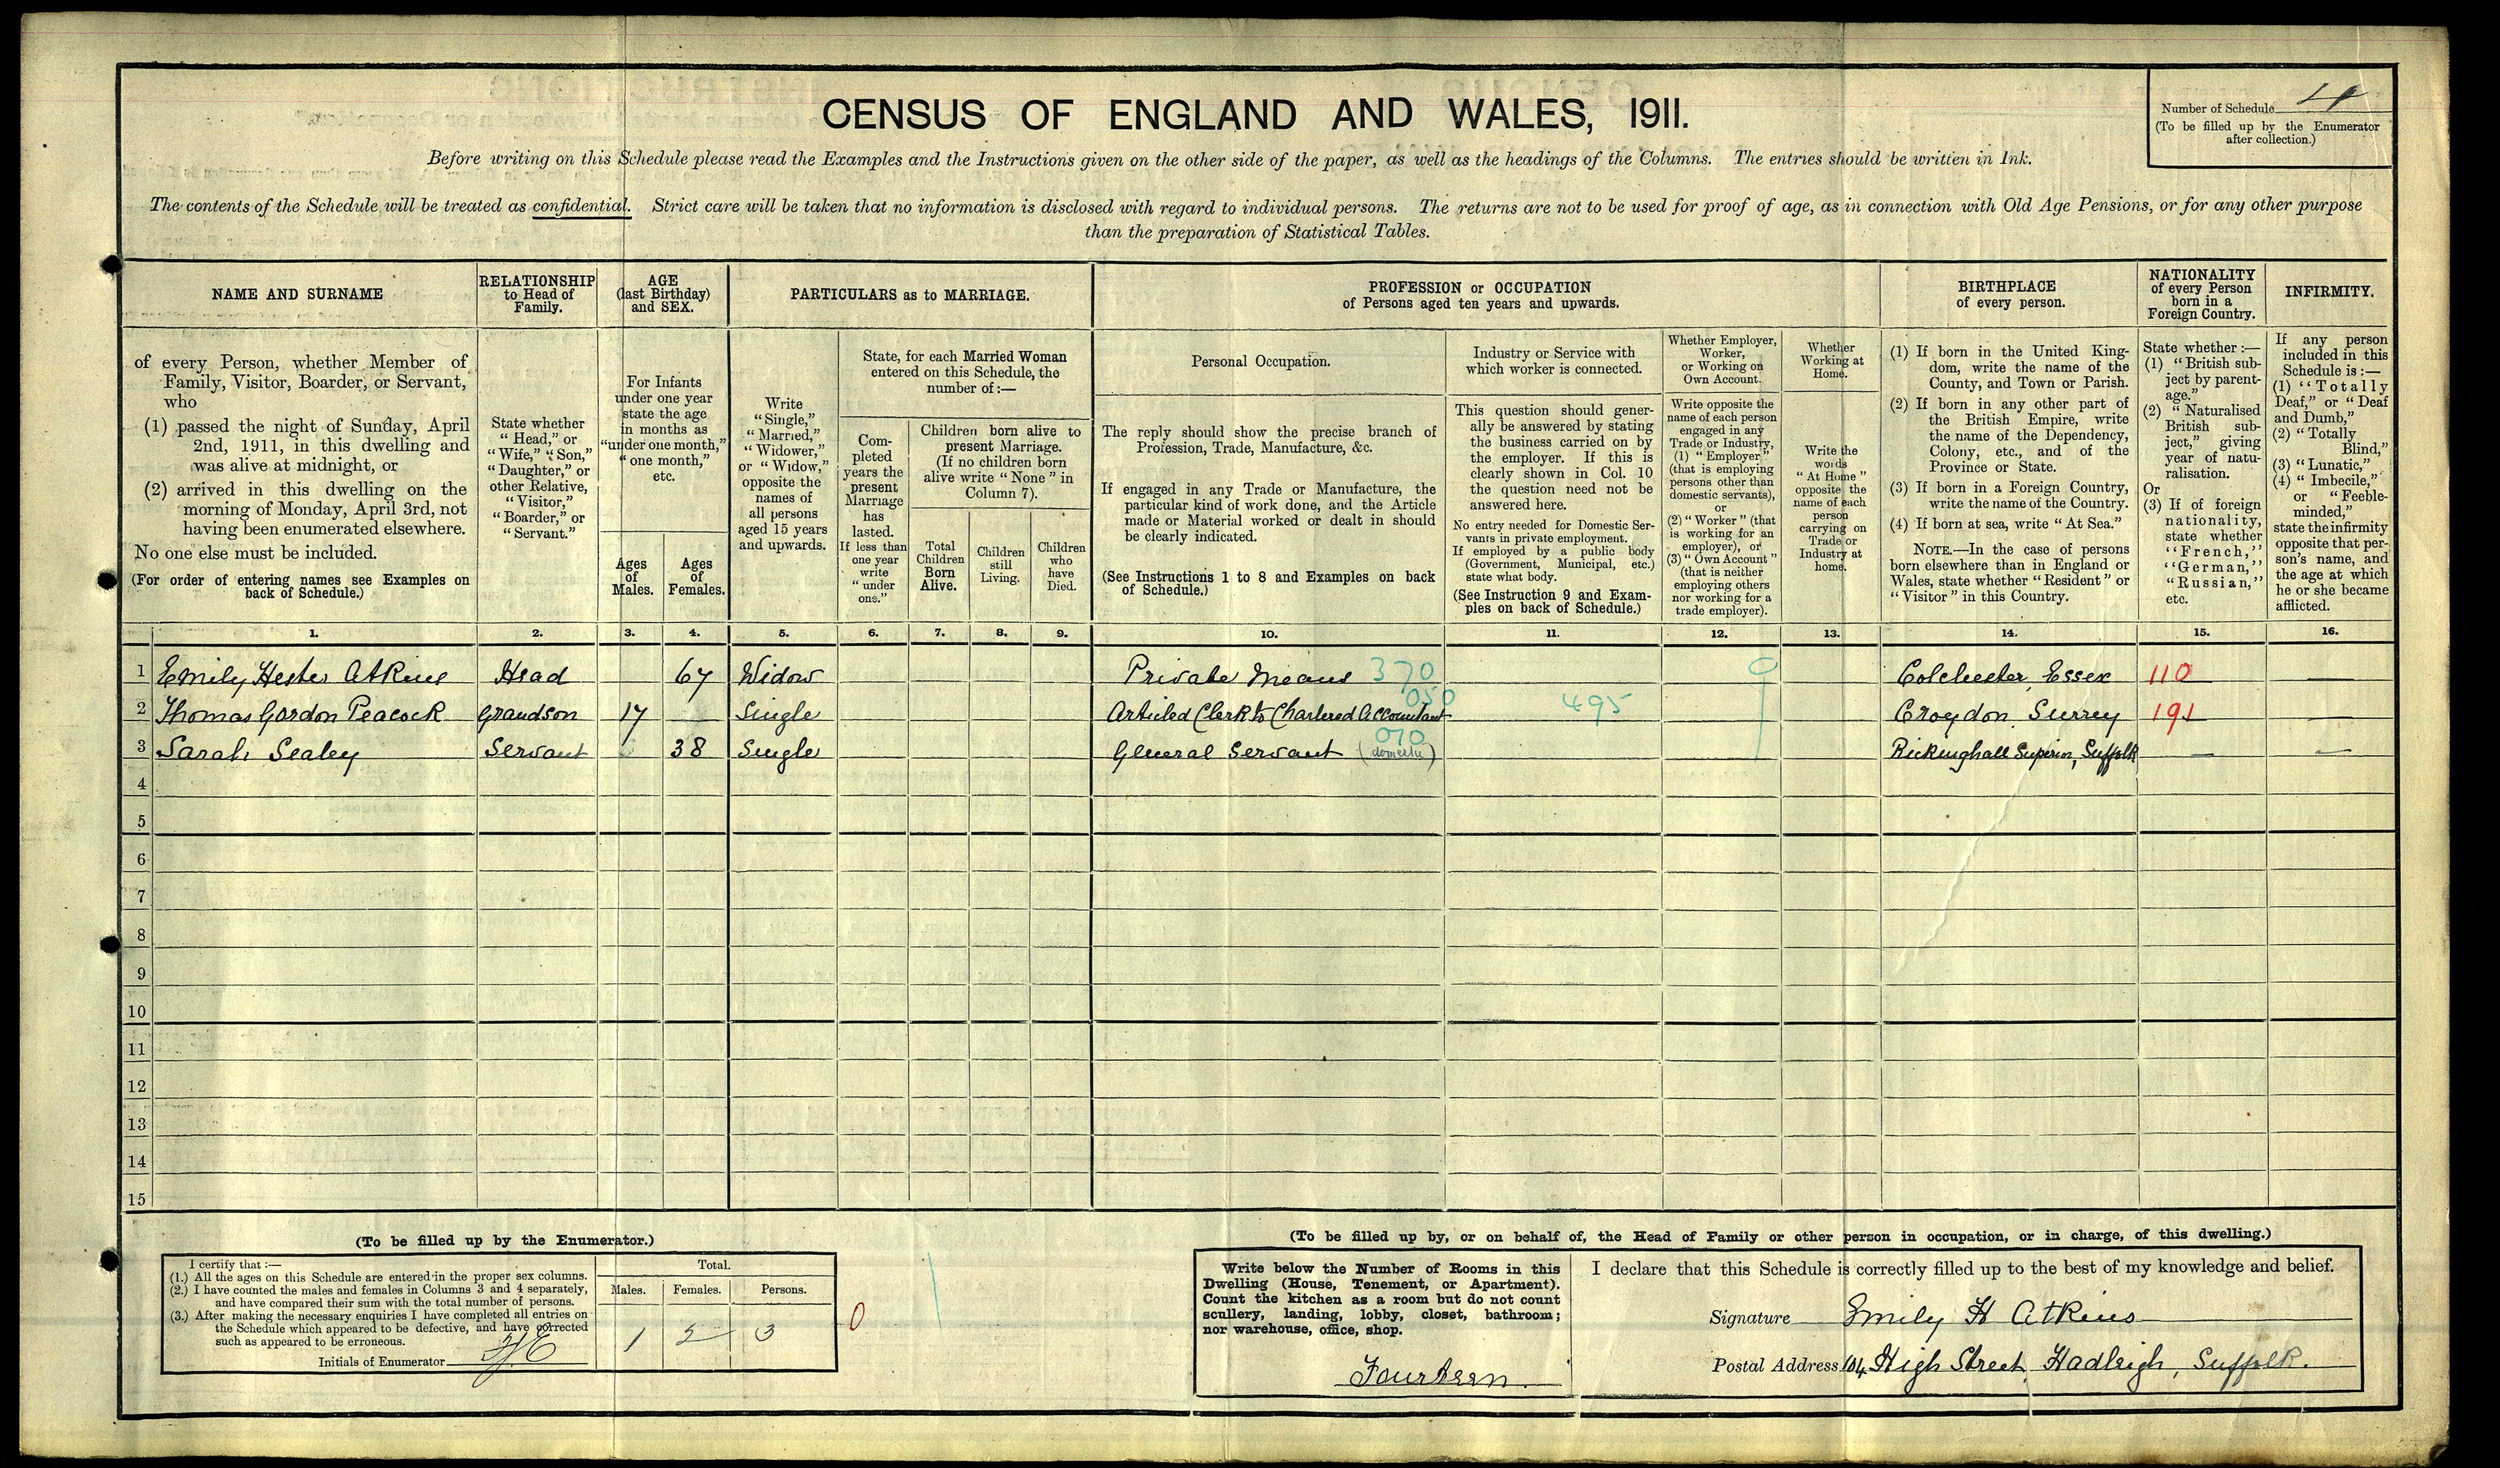 CENSUS OF ENGLAND AND WALES, 1911.
Number of Schedule
(To be filled up by the Enumerator
after collection.)
Before writing on this Schedule please read the Examples and the Instructions given on the other side of the paper, as well as the headings of the Columns. The entries should be written in Ink.
The contents of the Schedule will be treated as confidential. Strict care will be taken that no information is disclosed with regard to individual persons. The returns are not to be used for proof of age, as in connection with Old Age Pensions, or for any other purpose
than the preparation of Statistical Tables.
NAME AND SURNAME
of every Person, whether Member of
Family, Visitor, Boarder, or Servant,
who
(1) passed the night of Sunday, April
2nd, 1911, in this dwelling and
was alive at midnight, or
(2) arrived in this dwelling on the
morning of Monday, April 3rd, not
having been enumerated elsewhere.
No one else must be included.
(For order of entering names see Examples on
back of Schedule.)
RELATIONSHIP
to Head of
Family.
State whether
"Head," or
"Wife," "Son,"
"Daughter," or
other Relative,
"Visitor,"
"Boarder," or
"Servant."
AGE
(last Birthday)
and SEX.
For Infants
under one year
state the age
in months as
"under one month,"
"one month,"
etc.
Ages
of
Males.
Ages
of
Females.
PARTICULARS as to MARRIAGE.
Write
"Single,"
"Married,"
"Widower,"
or "Widow,"
opposite the
names of
all persons
aged 15 years
and upwards.
State, for each Married Woman
entered on this Schedule, the
number of:—
Com-
pleted
years the
present
Marriage
has
lasted.
If less than
one year
write
"under
one."
Children born alive to
present Marriage.
(If no children born
alive write "None" in
Column 7).
Total
Children
Born
Alive.
Children
still
Living.
Children
who
have
Died.
PROFESSION or OCCUPATION
of Persons aged ten years and upwards.
Personal Occupation.
The reply should show the precise branch of
Profession, Trade, Manufacture, &c.
If engaged in any Trade or Manufacture, the
particular kind of work done, and the Article
made or Material worked or dealt in should
be clearly indicated.
(See Instructions 1 to 8 and Examples on back
of Schedule.)
Industry or Service with
which worker is connected.
This question should gener-
ally be answered by stating
the business carried on by
the employer. If this is
clearly shown in Col. 10
the question need not be
answered here.
No entry needed for Domestic Ser-
vants in private employment.
If employed by a public body
(Government, Municipal, etc.)
state what body.
(See Instruction 9 and Exam-
ples on back of Schedule.)
Whether Employer,
Worker,
or Working on
Own Account.
Write opposite the
name of each person
engaged in any
Trade or Industry,
(1) "Employer"
(that is employing
persons other than
domestic servants),
or
(2) "Worker" (that
is working for an
employer), or
(3) "Own Account"
(that is neither
employing others
nor working for a
trade employer).
Whether
Working at
Home.
Write the
words
"At Home"
opposite the
name of each
person
carrying on
Trade or
Industry at
home.
BIRTHPLACE
of every person.
(1) If born in the United King-
dom, write the name of the
County, and Town or Parish.
(2) If born in any other part of
the British Empire, write
the name of the Dependency,
Colony, etc., and of the
Province or State.
(3) If born in a Foreign Country,
write the name of the Country.
(4) If born at sea, write "At Sea."
NOTE.—In the case of persons
born elsewhere than in England or
Wales, state whether "Resident" or
"Visitor" in this Country.
NATIONALITY
of every Person
born in a
Foreign Country.
State whether:—
(1) "British sub-
ject by parent-
age."
(2) "Naturalised
British sub-
ject," giving
year of natu-
ralisation.
Or
(3) If of foreign
nationality,
state whether
"French,"
"German,"
"Russian,"
etc.
INFIRMITY.
If any person
included in this
Schedule is:—
(1) "Totally
Deaf," or "Deaf
and Dumb,"
(2) "Totally
Blind,"
(3) "Lunatic,"
(4) "Imbecile,"
or "Feeble-
minded,"
state the infirmity
opposite that per-
son's name, and
the age at which
he or she became
afflicted.
1. 2. 3. 4. 5. 6. 7. 8. 9. 10. 11. 12. 13. 14. 15. 16.
1 Emily Hester Atkins Head 67 Widow Private Means 370 0 Colchester, Essex 110 —
2 Thomas Gordon Peacock Grandson 17 Single Articled Clerk to Chartered Accountant 050 495 Croydon, Surrey 191 —
3 Sarah Sealey Servant 38 Single General Servant (domestic) 070 Rickinghall Superior, Suffolk — —
4
5
6
7
8
9
10
11
12
13
14
15
(To be filled up by the Enumerator.)
I certify that:—
(1.) All the ages on this Schedule are entered in the proper sex columns.
(2.) I have counted the males and females in Columns 3 and 4 separately,
and have compared their sum with the total number of persons.
(3.) After making the necessary enquiries I have completed all entries on
the Schedule which appeared to be defective, and have corrected
such as appeared to be erroneous.
Initials of Enumerator
Total.
Males. Females. Persons.
1 2 3
0
(To be filled up by, or on behalf of, the Head of Family or other person in occupation, or in charge, of this dwelling.)
Write below the Number of Rooms in this
Dwelling (House, Tenement, or Apartment).
Count the kitchen as a room but do not count
scullery, landing, lobby, closet, bathroom;
nor warehouse, office, shop.
Fourteen
I declare that this Schedule is correctly filled up to the best of my knowledge and belief.
Signature Emily H Atkins
Postal Address 104 High Street, Hadleigh, Suffolk.